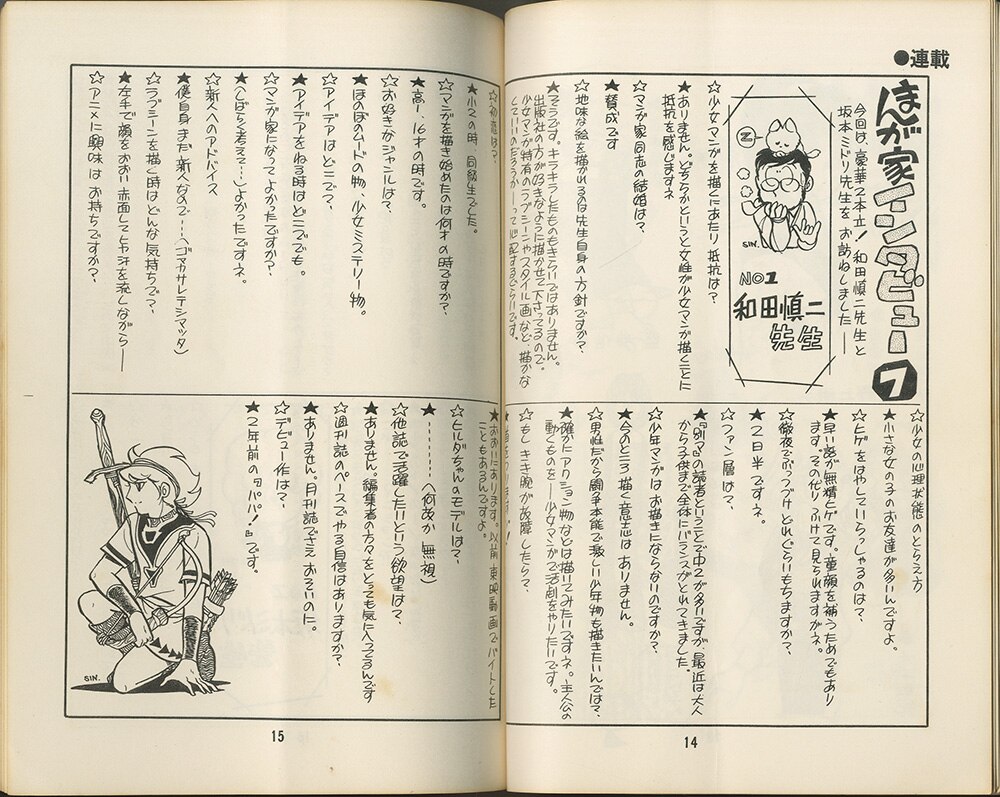 ●連載
まんが家インタビュー 7
今回は、豪華2本立！和田慎二先生と
坂本ミドリ先生を お訪ねしました――
Z
SIN.
NO1
和田慎二
先生
☆少女マンガを描くにあたり抵抗は？
★ありません。どちらかというと女性が少女マンガ描くことに
抵抗を感じますネ
☆マンガ家同志の結婚は？
★賛成です
☆地味な絵を描かれるのは先生自身の方針ですか？
★そうです。キラキラしたものもきらいではありません。
出版社の方が好きなように描かせて下さってるので。
少女マンガ特有のラブシーンやスタイル画など、描かな
くていいのだろうか――って心配するぐらいです。
☆少女の心理状態のとらえ方
★小さな女の子のお友達が多いんですよ。
☆ヒゲをはやしていらっしゃるのは？
★早い話が無精ヒゲです。童顔を補うためでもあり
ます。その代りふけて見られますがネ。
☆徹夜でぶっつづけ どれぐらいもちますか？
★2日半ですネ。
☆ファン層は？
★『別マ』の読者ということで中2が多いですが、最近は大人
から子供まで全体にバランスがとれてきました。
☆少年マンガはお描きにならないのですか？
★今のところ描く意志は ありません。
☆男性だから闘争本能で激しい少年物も描きたいんでは？
★確かにアクション物などは描いてみたいですネ。主人公の
動くものを――少女マンガで活劇をやりたいです。
☆もし キキ腕が故障したら？
14
☆初恋は？
★小2の時、同級生でした。
☆マンガを描き始めたのは何才の時ですか？
★高1、16才の時です。
☆お好きなジャンルは？
★ほのぼのムードの物、少女ミステリー物。
☆アイデアはどこで？
★アイデアをねる時はどこででも。
☆マンガ家になってよかったですか？
★（しばらく考えて…）よかったですネ。
☆新人へのアドバイス
★僕自身まだ新人なので……（ゴマカサレテシマッタ）
☆ラブシーンを描く時はどんな気持ちで？
★左手で顔をおおい赤面してヒヤ汗を流しながら――
☆アニメに興味は お持ちですか？
★おおいにあります。以前 東映動画でバイトした
こともあるんですよ。
☆ヒルダちゃんのモデルは？
★………………（何故か 無視）
☆他誌で活躍したいという欲望は？
★ありません。編集者の方々をとっても気に入ってるんです
☆週刊誌のペースでやる自信はありますか？
★ありません。月刊誌でさえ おそいのに。
☆デビュー作は？
★2年前の『パパ！』です。
SIN.
15